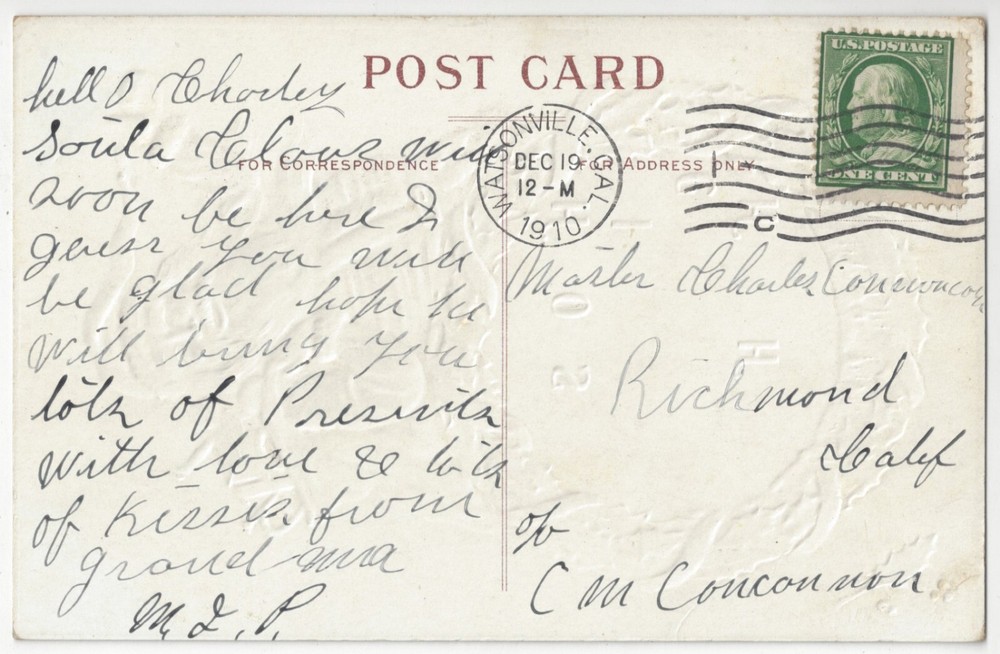 POST CARD
FOR CORRESPONDENCE
FOR ADDRESS ONLY
U.S. POSTAGE
ONE CENT
WATSONVILLE, CAL.
DEC 19
12-M
1910
C
hello Charley
Santa Claus will
soon be here I
guess you will
be glad hope he
will bring you
lots of Presents
with love & lots
of Kisses from
grand ma
M. I. P.
Master Charles
Richmond
Calif
c/o
C M Concannon